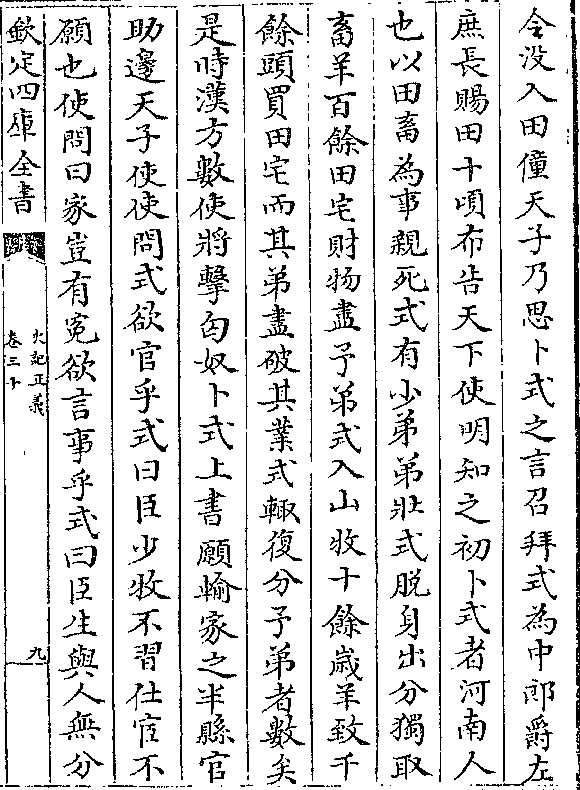 令没入田僮天子乃思卜式之言召拜式為中郎爵左
庶長賜田十頃布告天下使明知之初卜式者河南人
也以田畜為事親死式有少弟弟壯式脱身出分獨取
畜羊百餘田宅財物盡予弟式入山牧十餘歲羊致千
餘頭買田宅而其弟盡破其業式輙復分予弟者數矣
是時漢方數使將擊匈奴卜式上書願輸家之半縣官
助邊天子使使問式欲官乎式曰臣少牧不習仕宦不
願也使問曰家豈有寃欲言事乎式曰臣生與人無分
欽定四庫全書
史記正義
卷三十
九